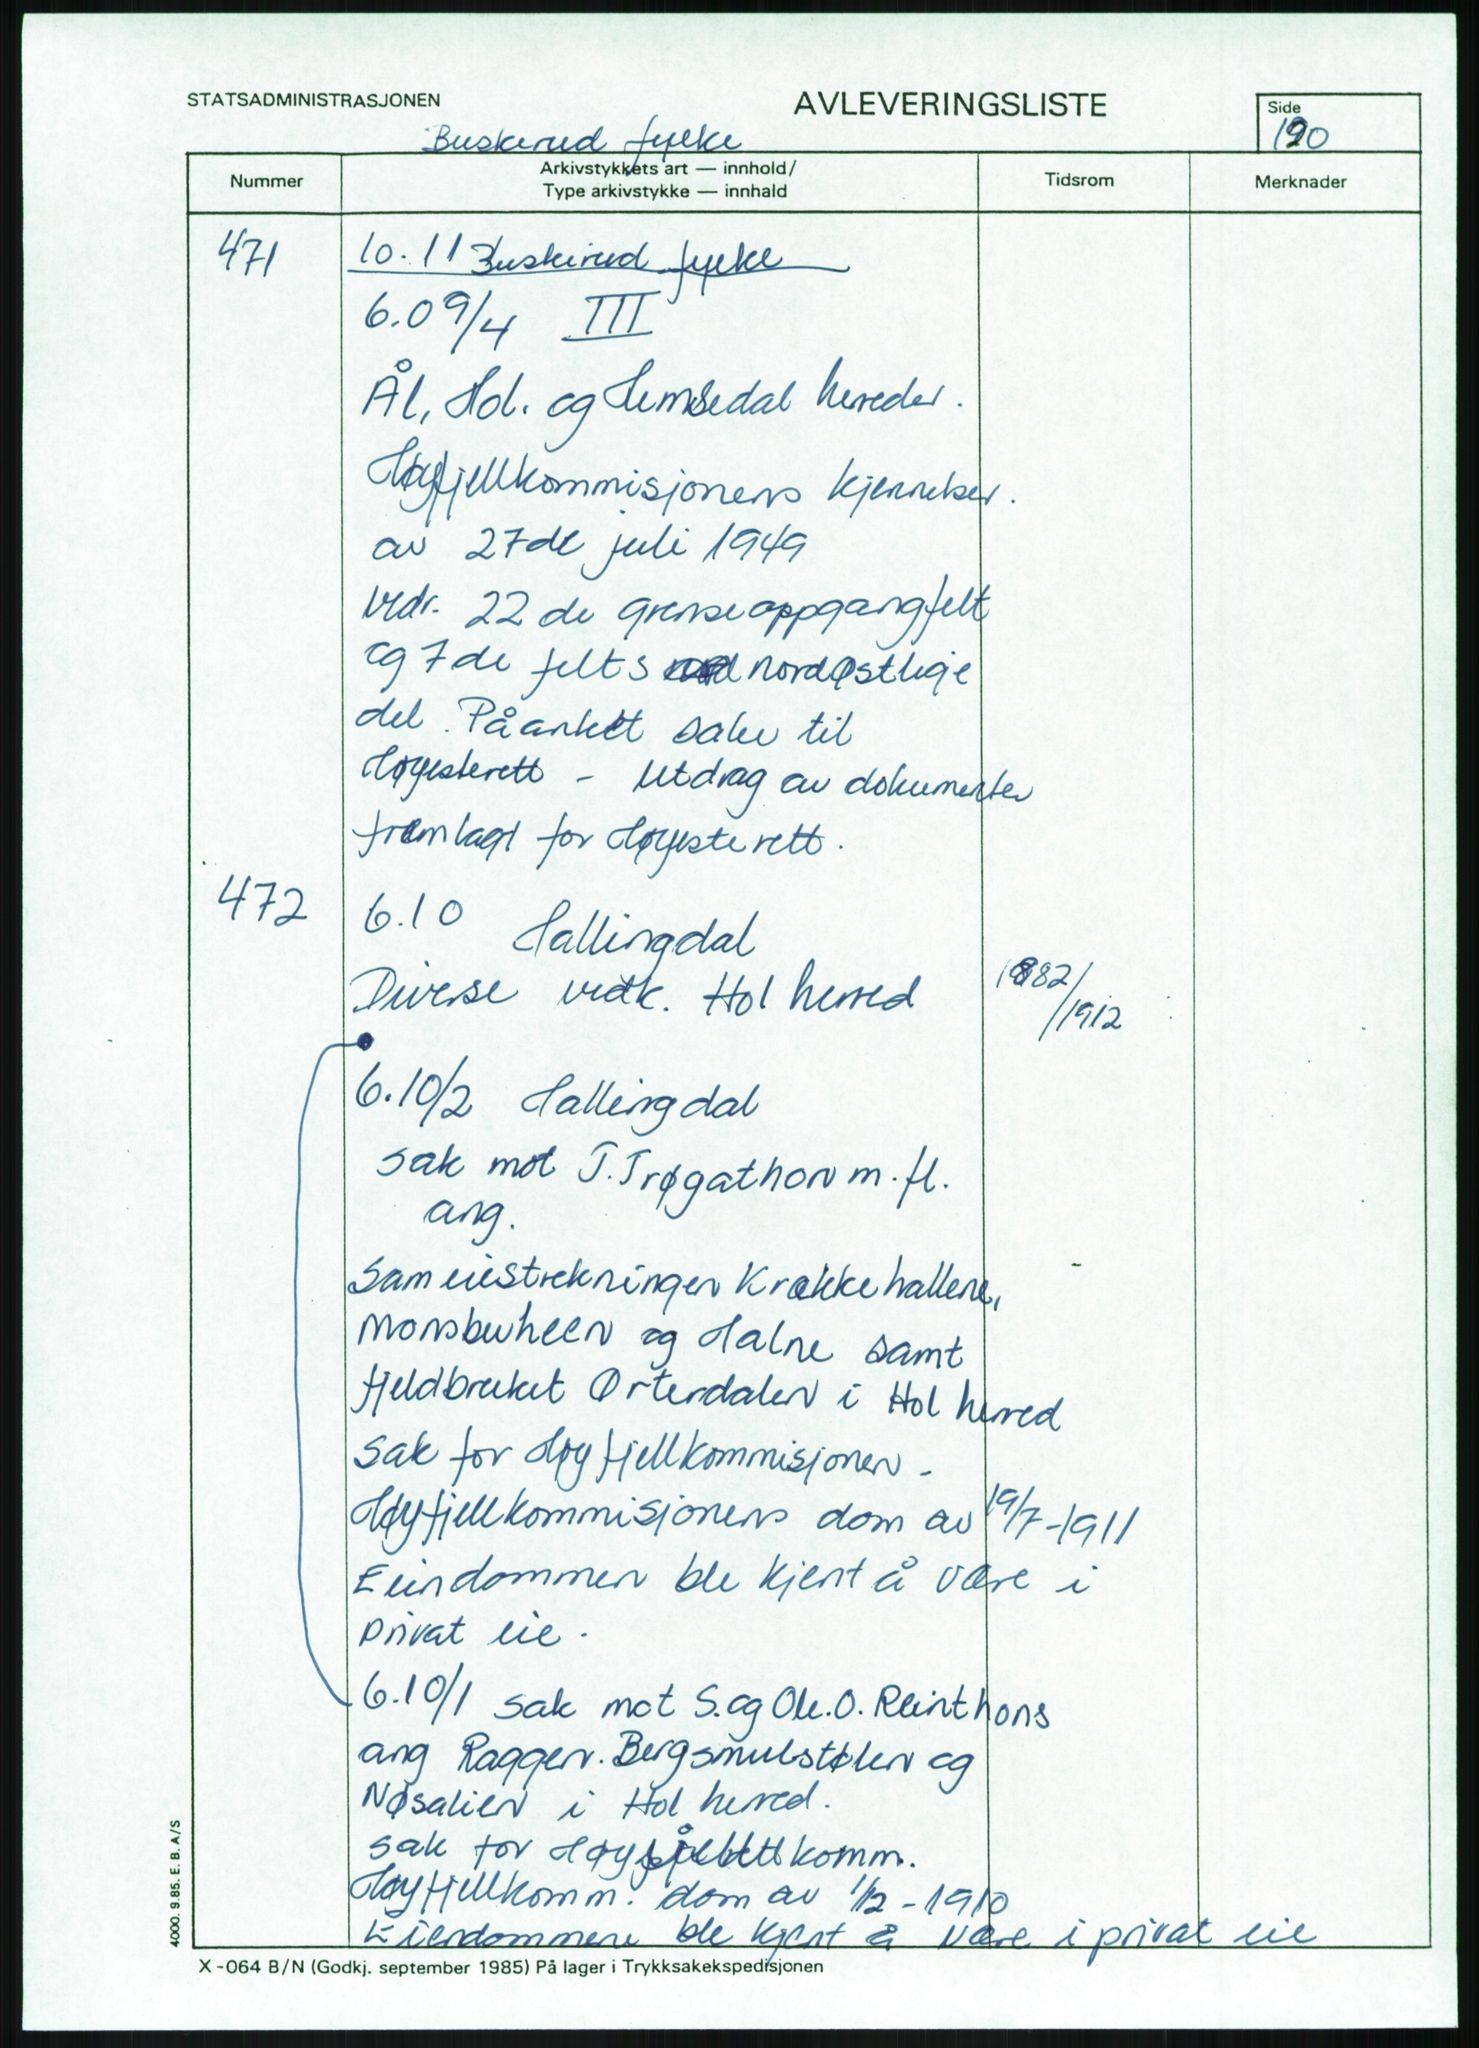 STATSADMINISTRASJONEN
AVLEVERINGSLISTE
Side
190
Buskerud fylke
Nummer
Arkivstykkets art — innhold/
Type arkivstykke — innhald
Tidsrom
Merknader
471
10.11 Buskerud fylke
6.09/4 III
Ål, Hol. og Hemsedal herreder.
Høyfjellkommisjonens kjennelser.
av 27de juli 1949
vedr. 22 de grenseoppgangfelt
og 7 de felts nordøstlige
del. Påanket saker til
Høyesterett - Utdrag av dokumenter
fremlagt for Høyesterett.
472
6.10 Hallingdal
Diverse vedk. Hol herred
1882/
/1912
6.10/2 Hallingdal
Sak mot T. Trøgathon m.fl.
ang.
Sameiestrekningen Krækkehallene,
Monsbuheen og Halne samt
fjeldbruket Ørterdalen i Hol herred
Sak for Høyfjellkommisjonen -
Høyfjellkommisjonens dom av 19/7-1911
Eiendommen ble kjent å være i
privat eie.
6.10/1 sak mot S. og Ole. O. Reinthons
ang Raggen. Bergsmulstølen og
Nøsalien i Hol herred.
sak for komm.
Høyfjellkomm. dom av 1/12-1910
Eiendommene ble kjent å være i privat eie
4000. 9.85. E. B. A/S
X-064 B/N (Godkj. september 1985) På lager i Trykksakekspedisjonen